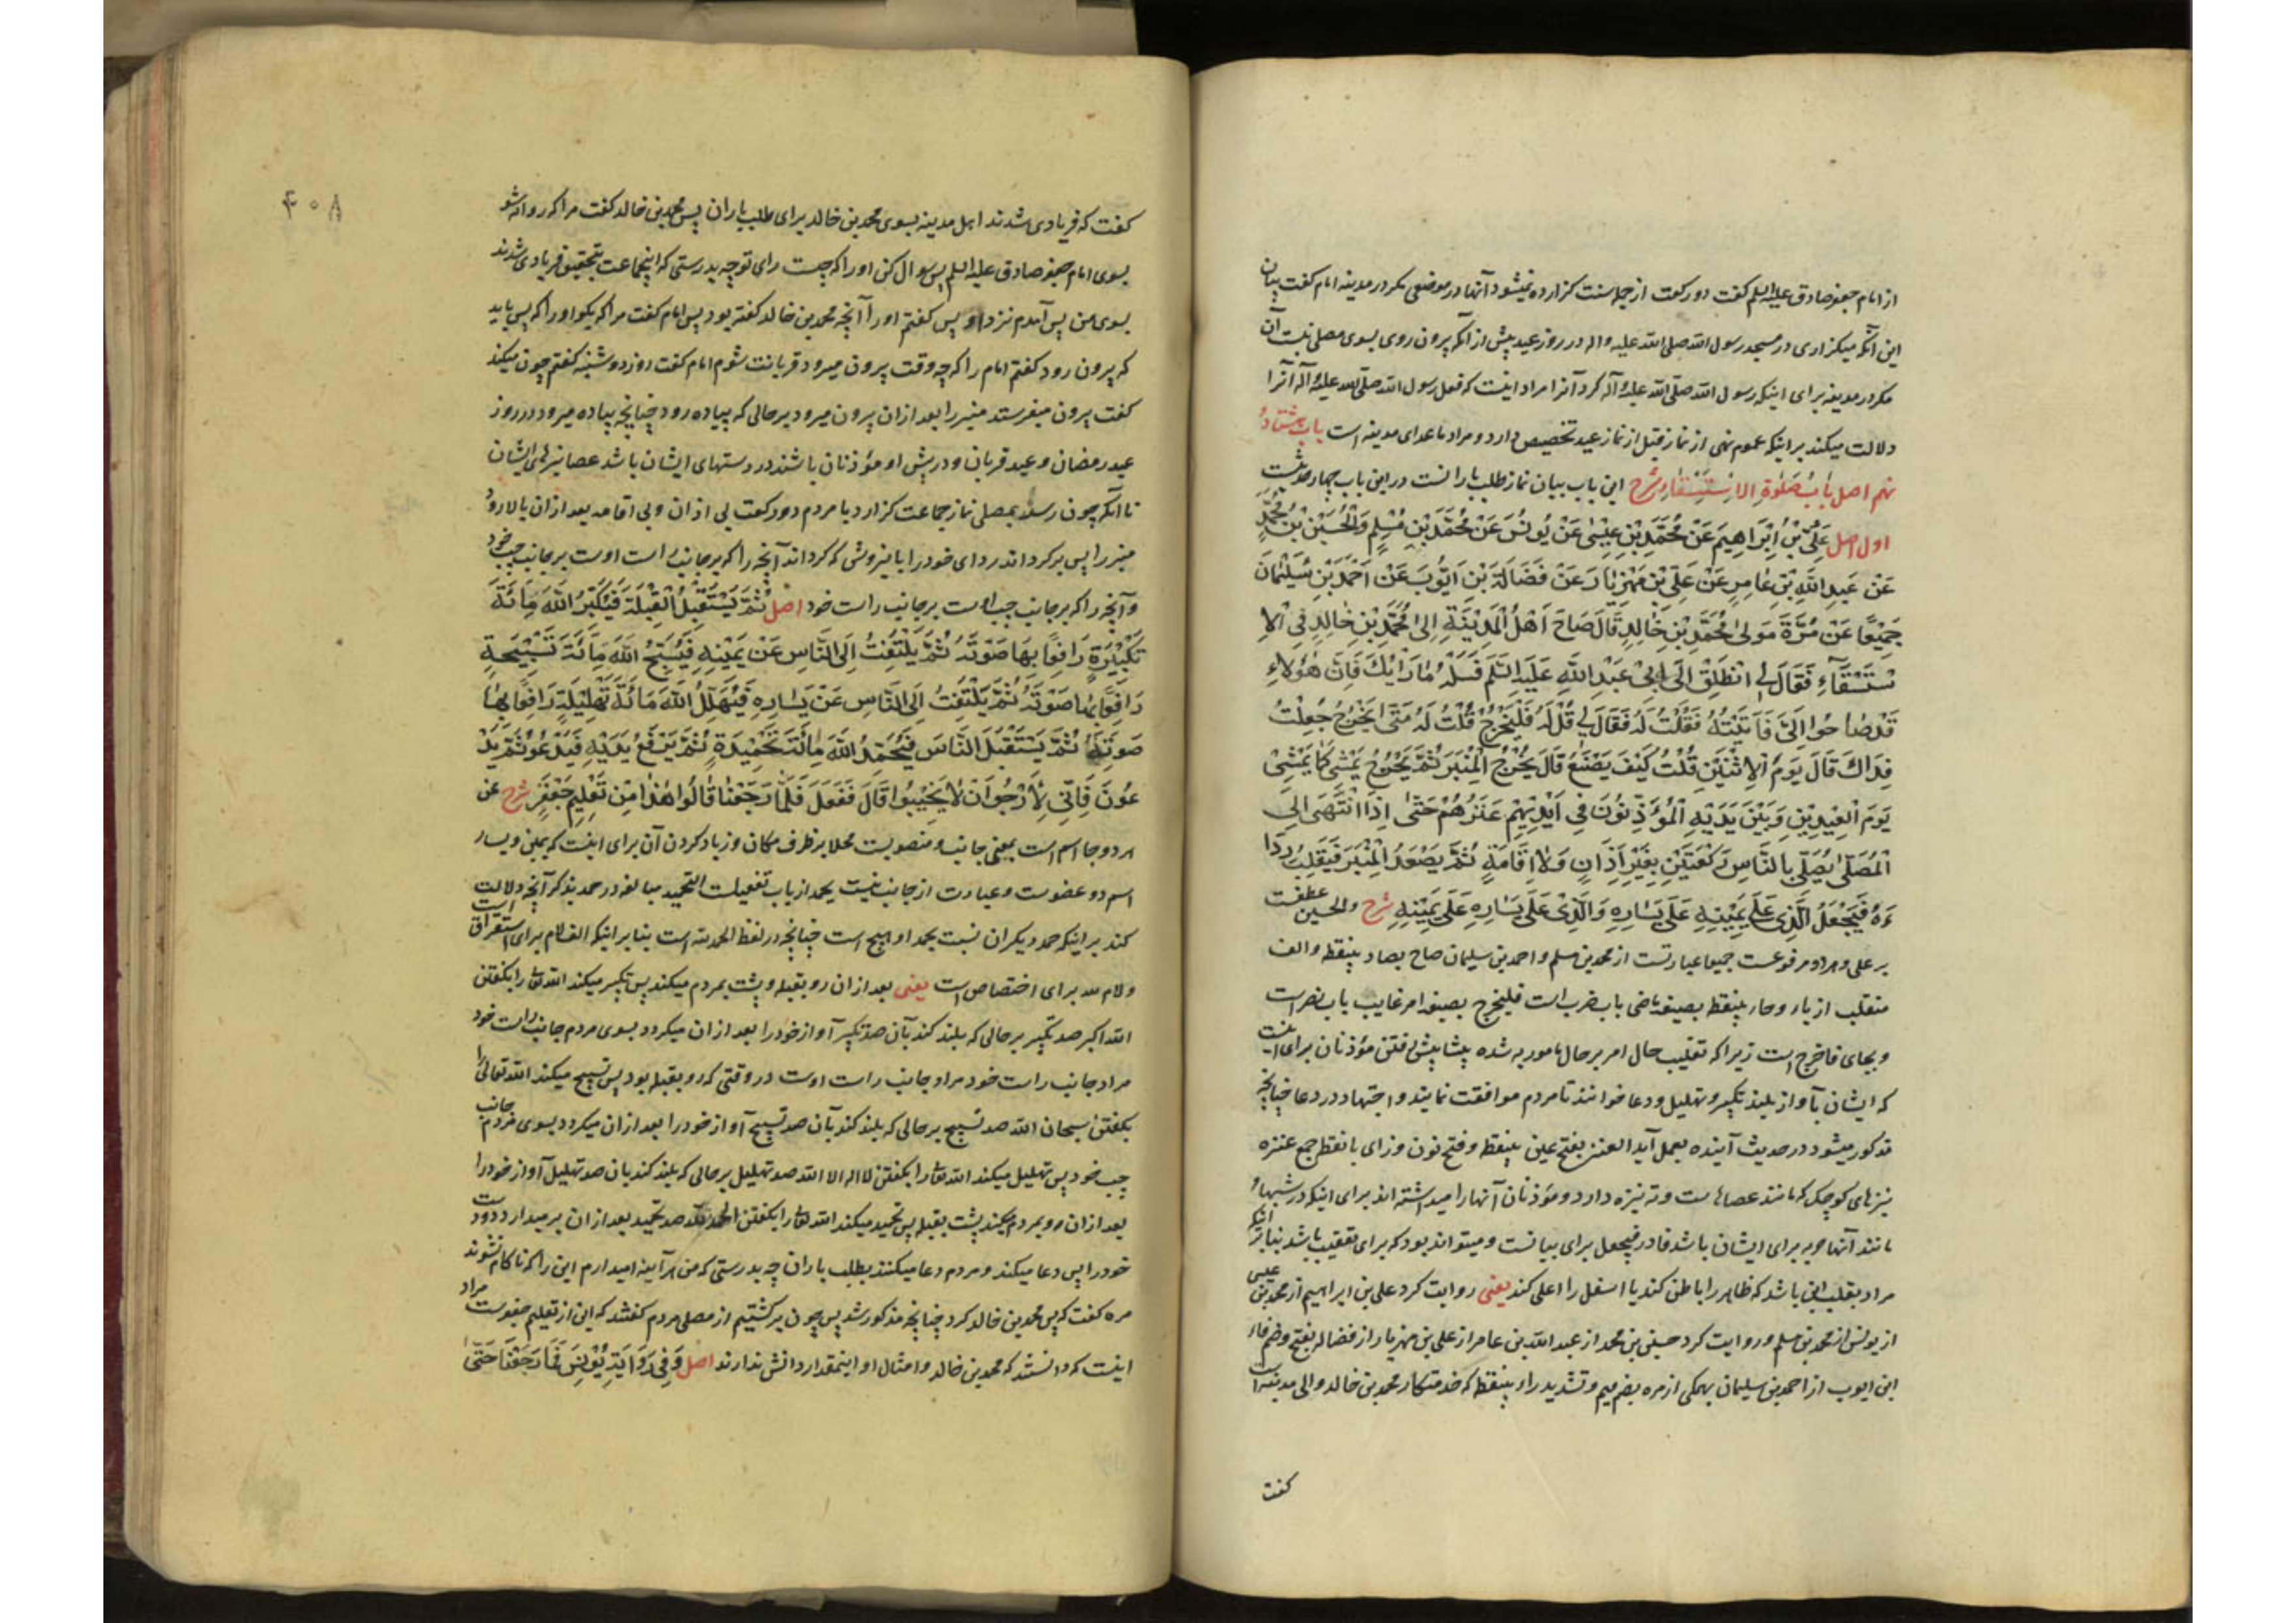 از امام جعفر صادق علیه السلم گفت دو رکعت از جمله سنت گزارده نمیشود آنها در موضعی مگر در مدینه امام گفت بیان
این آنکه میگزاری در مسجد رسول الله صلی الله علیه واله در روز عید پیش از آنکه برون روی بسوی مصلی نیست آن
مگر در مدینه برای اینکه رسول الله صلی الله علیه وآله کرد آنرا مراد اینست که فعل رسول الله صلی الله علیه وآله آنرا
دلالت میکند بر اینکه عموم نهی از نماز قبل از نماز عید تخصیص دارد و مراد ماعدای مدینه است باب هشتاد و
نهم اصل بَابُ صَلٰوةِ الاِسْتِسْقَاءِ شرح این باب بیان نماز طلب بارانست در این باب چهار حدیثست
اول اصل عَلِیُّ بْنُ اِبْرَاهِیمَ عَنْ مُحَمَّدِ بْنِ عِیْسٰی عَنْ یُونُسَ عَنْ مُحَمَّدِ بْنِ مُسْلِمٍ وَالْحُسَیْنُ بْنُ مُحَمَّدٍ
عَنْ عَبدِ اللّٰهِ بْنِ عٰامِرٍ عَنْ عَلِیِّ بْنِ مَهْزِیٰارَ عَنْ فَضَالَةَ بْنِ اَیُّوبَ عَنْ اَحْمَدَ بْنِ سُلَیْمٰانَ
جَمِیْعًا عَنْ مُرَّةَ مَولیٰ مُحَمَّدِ بْنِ خَالِدٍ قَالَ صَاحَ اَهْلُ الْمَدِیْنَةِ اِلیٰ مُحَمَّدِ بْنِ خٰالِدٍ فِی الْاِ
سْتِسْقَاءِ فَقَالَ لِی انْطَلِقْ اِلَی اَبِیْ عَبْدِ اللّٰهِ عَلَیْهِ السَّلَمُ فَسَلْهُ مٰا رَأْیُکَ فَاِنَّ هٰؤُلاءِ
قَدْ صٰاحُوا اِلَیَّ فَاَتَیْتُهُ فَقُلْتُ لَهُ فَقَالَ لِی قُلْ لَهُ فَلْیَخْرُجْ قُلْتُ لَهُ مَتَی یَخْرُجُ جُعِلْتُ
فِدَاکَ قَالَ یَوْمَ الْاِثْنَیْنِ قُلْتُ کَیْفَ یَصْنَعُ قَالَ یُخْرِجُ الْمِنْبَرَ ثُمَّ یَخْرُجُ یَمْشِی کَمٰا یَمْشِیْ
یَوْمَ الْعِیْدَیْنِ وَبَیْنَ یَدَیْهِ الْمُؤَذِّنُونَ فِی اَیْدِیْهِمْ عَنَزُهُمْ حَتّٰی اِذَا انْتَهَی اِلَی
الْمُصَلّٰی یُصَلِّی بِالنَّاسِ رَکْعَتَیْنِ بِغَیْرِ اَذَانٍ وَلٰا اِقَامَةٍ ثُمَّ یَصْعَدُ الْمِنْبَرَ فَیَقْلِبُ رِدَا
ءَهُ فَیَجْعَلُ الَّذِی عَلَی یَمِیْنِهِ عَلَی یَسَارِهِ وَالَّذِیْ عَلَی یَسَارِهِ عَلَی یَمِیْنِهِ شرح والحسین عطفست
بر علی و هر دو مرفوعست جمیعا عبارتست از محمد بن مسلم و احمد بن سلیمان صاح بصاد بینقطه و الف
منقلب از یاء و حاء بینقطه بصیغه ماضی باب ضرب است فلیخرج بصیغه امر غایب باب نصر است
و بجای فاخرج است زیرا که تغلیب حال امر بر حال مامور به شده پیشاپیش رفتن مؤذنان برای اینست
که ایشان بآواز بلند تکبیر و تهلیل و دعا خوانند تا مردم موافقت نمایند و اجتهاد در دعا چنانچه
مذکور میشود در حدیث آینده بعمل آید العنز بفتح عین بینقطه و فتح نون و زای بانقطه جمع عنزه
نیزهای کوچک که مانند عصاست و ته نیزه دارد و مؤذنان آنها را میداشته اند برای اینکه در شبها و
مانند آنها حربه برای ایشان باشد فا در فیجعل برای بیانست و میتواند بود که برای تعقیب باشد بنا بر اینکه
مراد بقلب این باشد که ظاهر را باطن کند یا اسفل را اعلی کند یعنی روایت کرد علی بن ابراهیم از محمد بن عیسی
از یونس از محمد بن مسلم و روایت کرد حسین بن محمد از عبد الله بن عامر از علی بن مهزیار از فضاله بفتح و ضم فاء
ابن ایوب از احمد بن سلیمان همگی از مره بضم میم و تشدید راء بینقطه که خدمتکار محمد بن خالد والی مدینه است
گفت
۴۰۸
گفت که فریادی شدند اهل مدینه بسوی محمد بن خالد برای طلب باران پس محمد بن خالد گفت مرا که روانه شو
بسوی امام جعفر صادق علیه السلم پس سوال کن او را که چیست رای تو چه بدرستی که اینجماعت بتحقیق فریادی شدند
بسوی من پس آمدم نزد او پس گفتم او را آنچه محمد بن خالد گفته بود پس امام گفت مرا که بگو او را که پس باید
که برون رود گفتم امام را که چه وقت برون میرود قربانت شوم امام گفت روز دوشنبه گفتم چون میکند
گفت برون میفرستد منبر را بعد از ان برون میرود بر حالی که پیاده رود چنانچه پیاده میرود در روز
عید رمضان و عید قربان و در پیش او مؤذنان باشند در دستهای ایشان باشد عصا نیزهای ایشان
تا آنکه چون رسد بمصلی نماز جماعت گزارد با مردم دو رکعت بی اذان و بی اقامه بعد از ان بالا رود
منبر را پس بر گرداند ردای خود را باینروش که گرداند آنچه را که بر جانب راست اوست بر جانب چپ خود
و آنچه را که بر جانب چپ اوست بر جانب راست خود اصل ثُمَّ یَسْتَقْبِلُ الْقِبْلَةَ فَیُکَبِّرُ اللّٰهَ مِائَةَ
تَکْبِیْرَةٍ رَافِعًا بِهَا صَوْتَهُ ثُمَّ یَلْتَفِتُ اِلَی النَّاسِ عَنْ یَمِیْنِهِ فَیُسَبِّحُ اللّٰهَ مِائَةَ تَسْبِیْحَةٍ
رَافِعًا بِهَا صَوْتَهُ ثُمَّ یَلْتَفِتُ اِلَی النَّاسِ عَنْ یَسَارِهِ فَیُهَلِّلُ اللّٰهَ مِائَةَ تَهْلِیْلَةٍ رَافِعًا بِهَا
صَوْتَهُ ثُمَّ یَسْتَقْبِلُ النَّاسَ فَیُحَمِّدُ اللّٰهَ مِائَةَ تَحْمِیْدَةٍ ثُمَّ یَرْفَعُ یَدَیْهِ فَیَدْعُو ثُمَّ یَدْ
عُونَ فَاِنِّی لَأَرْجُو اَنْ لٰا یَخِیْبُوا قَالَ فَفَعَلَ فَلَمَّا رَجَعْنَا قَالُوا هٰذٰا مِنْ تَعْلِیْمِ جَعْفَرٍ شرح عن
هر دو جا اسم است بمعنی جانب و منصوبست محلا بر ظرف مکان و زیاد کردن آن برای اینست که یمین و یسار
اسم دو عضوست و عبارت از جانب نیست یحمد از باب تفعیلست التحمید مبالغه در حمد بذکر آنچه دلالت
کند بر اینکه حمد دیگران نسبت بحمد او هیچ است چنانچه در لفظ الحمد لله است بنا بر اینکه الف لام برای استغراق است
و لام لله برای اختصاص است یعنی بعد از ان رو بقبله و پشت بمردم میکند پس تکبیر میکند الله تعالی را بگفتن
الله اکبر صد تکبیر بر حالی که بلند کند بآن صد تکبیر آواز خود را بعد از ان میگردد بسوی مردم جانب راست خود
مراد جانب راست خود مراد جانب راست اوست در وقتی که رو بقبله بود پس تسبیح میکند الله تعالی را
بگفتن سبحان الله صد تسبیح بر حالی که بلند کند بآن صد تسبیح آواز خود را بعد از ان میگردد بسوی مردم جانب
چپ خود پس تهلیل میکند الله تعالی را بگفتن لا اله الا الله صد تهلیل بر حالی که بلند کند بان صد تهلیل آواز خود را
بعد از ان رو بمردم میکند پشت بقبله پس تحمید میکند الله تعالی را بگفتن الحمد لله صد تحمید بعد از ان بر میدارد دو دست
خود را پس دعا میکند و مردم دعا میکنند بطلب باران چه بدرستی که من هر آینه امید دارم این را که ناکام نشوند
مره گفت که پس محمد بن خالد کرد چنانچه مذکور شد پس چون برگشتیم از مصلی مردم گفتند که این از تعلیم جعفرست مراد
اینست که دانستند که محمد بن خالد و امثال او اینمقدار دانش ندارند اصل وَفِی رِوَایَةِ یُونُسَ فَمَا رَجَعْنَا حَتّٰی